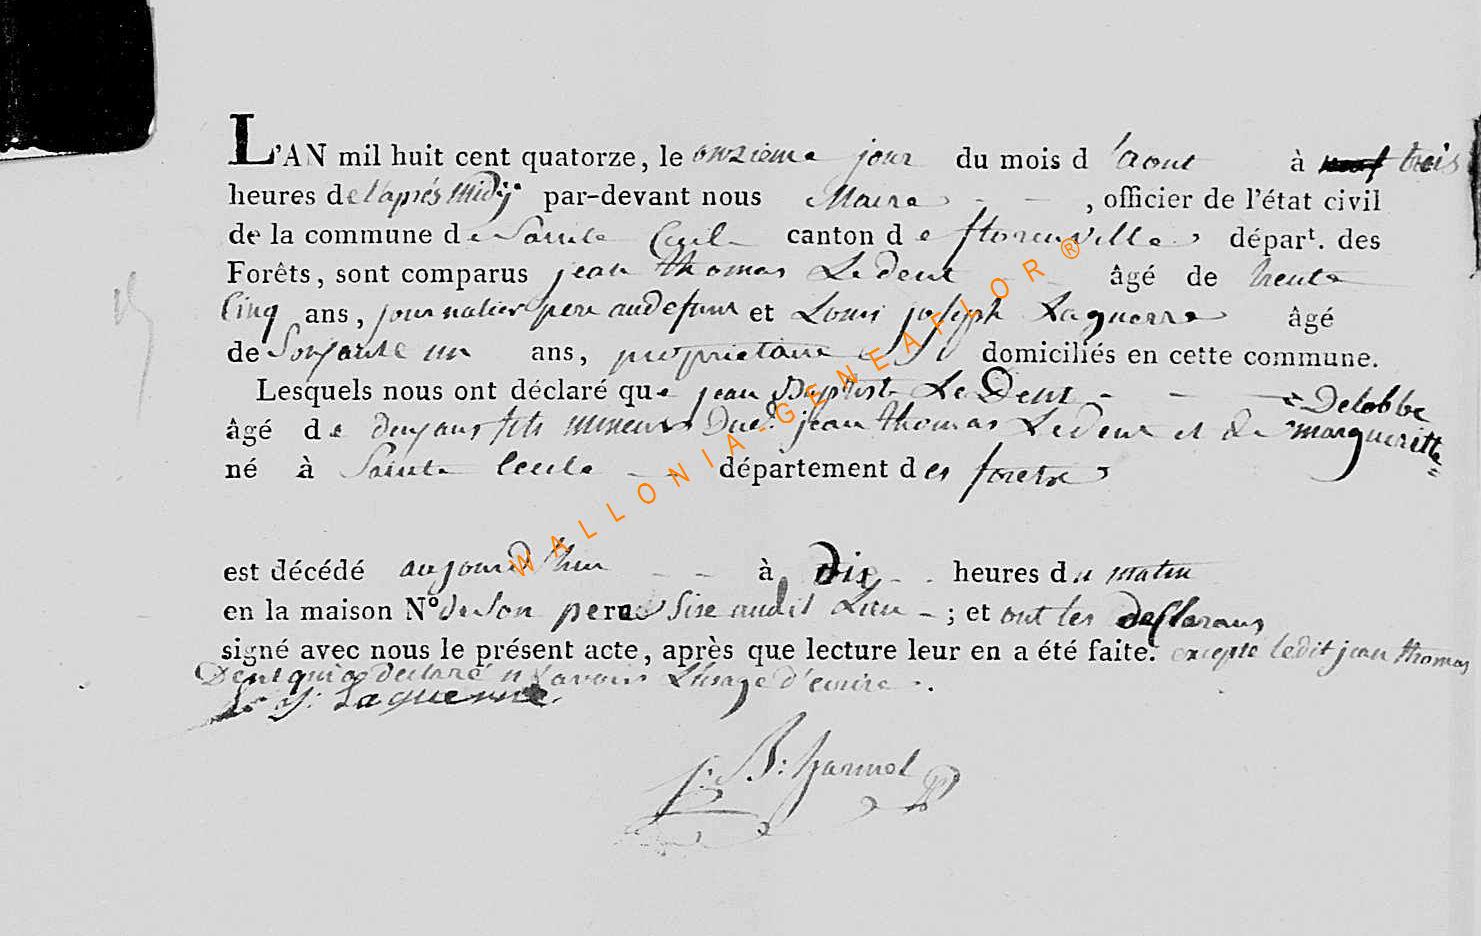 L'AN mil huit cent quatorze, le onzieme jour du mois d'aout à neuf trois
heures de l'aprés midÿ par-devant nous Maire - - , officier de l'état civil
de la commune de Sainte Cecile canton de florenville, départ. des
Forêts, sont comparus jean thomas Ledent âgé de trente
Cinq ans, journalier pere au defunt et Louis joseph Laguerre âgé
de Soixante un ans, proprietaire domiciliés en cette commune.
Lesquels nous ont déclaré que jean Baptiste LeDent - - = Delobbe
âgé de deux ans fils mineur Dud. jean thomas Ledent et de margueritte =
né à Sainte Cecile - - département des forets
est décédé aujourd'hui - - à dix - . heures du matin
en la maison N° de son pere Sise audit Lieu - ; et ont les declarans
signé avec nous le présent acte, après que lecture leur en a été faite. excepté ledit jean thomas
Dent qui a declaré n Savoir L'usage d'ecrire .
L. J. Laguerre.
J: B: harmel
WALLONIA-GENEAFLOR®